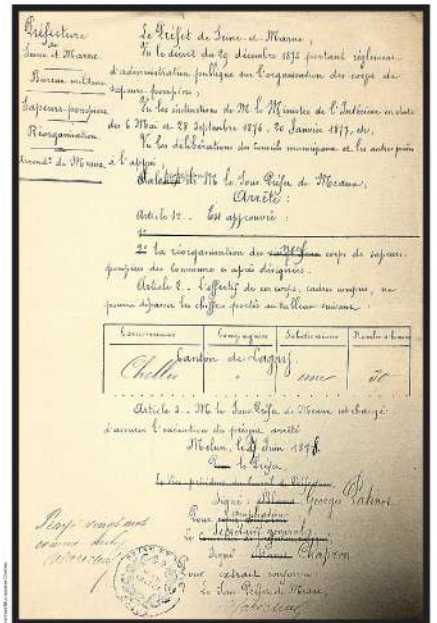 Préfecture
de
Seine-et-Marne
Bureau militaire
Sapeurs-pompiers
Réorganisation
Arrondt de Meaux
Le Préfet de Seine-et-Marne,
Vu le décret du 29 décembre 1875 portant règlement
d'administration publique sur l'organisation des corps de
sapeurs-pompiers,
Vu les instructions de M. le Ministre de l'Intérieur en date
des 6 Mai et 28 Septembre 1876, 20 Janvier 1877, etc,
Vu les délibérations des Conseils municipaux et les autres pièces
à l'appui,
M. le Sous-Préfet de Meaux,
Arrête :
Article 1er. - Est approuvée :
1°
2° la réorganisation des corps de sapeurs-
pompiers des communes ci-après désignées.
Article 2. - L'effectif de ces corps, cadres compris, ne
pourra dépasser les chiffres portés au tableau suivant.
Communes Compagnies Subdivisions Nombre d'hommes
Canton de Lagny
Chelles " une 30
Article 3. - M. le Sous-Préfet de Meaux est chargé
d'assurer l'exécution du présent arrêté
Melun, le Juin 1878.
le Préfet,
Le Vice-président du Conseil de Préfecture,
Signé : Georges Patinot
Pour ampliation
Le Secrétaire général,
Signé Chapron
Pour extrait conforme
Le Sous-Préfet de Meaux,
Rayé vingt mots
comme nuls